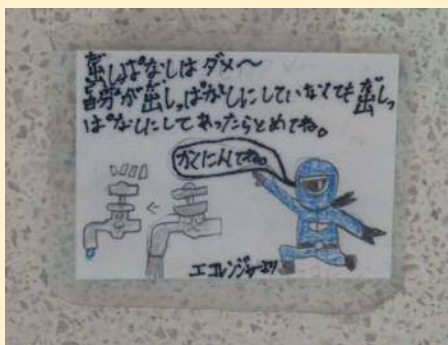 出しぱなしはダメ〜
自分が出しっぱなしにしていなくても出しっ
ぱなしにしてあったらとめてね。
かくにんしてね。
エコレンジャーより